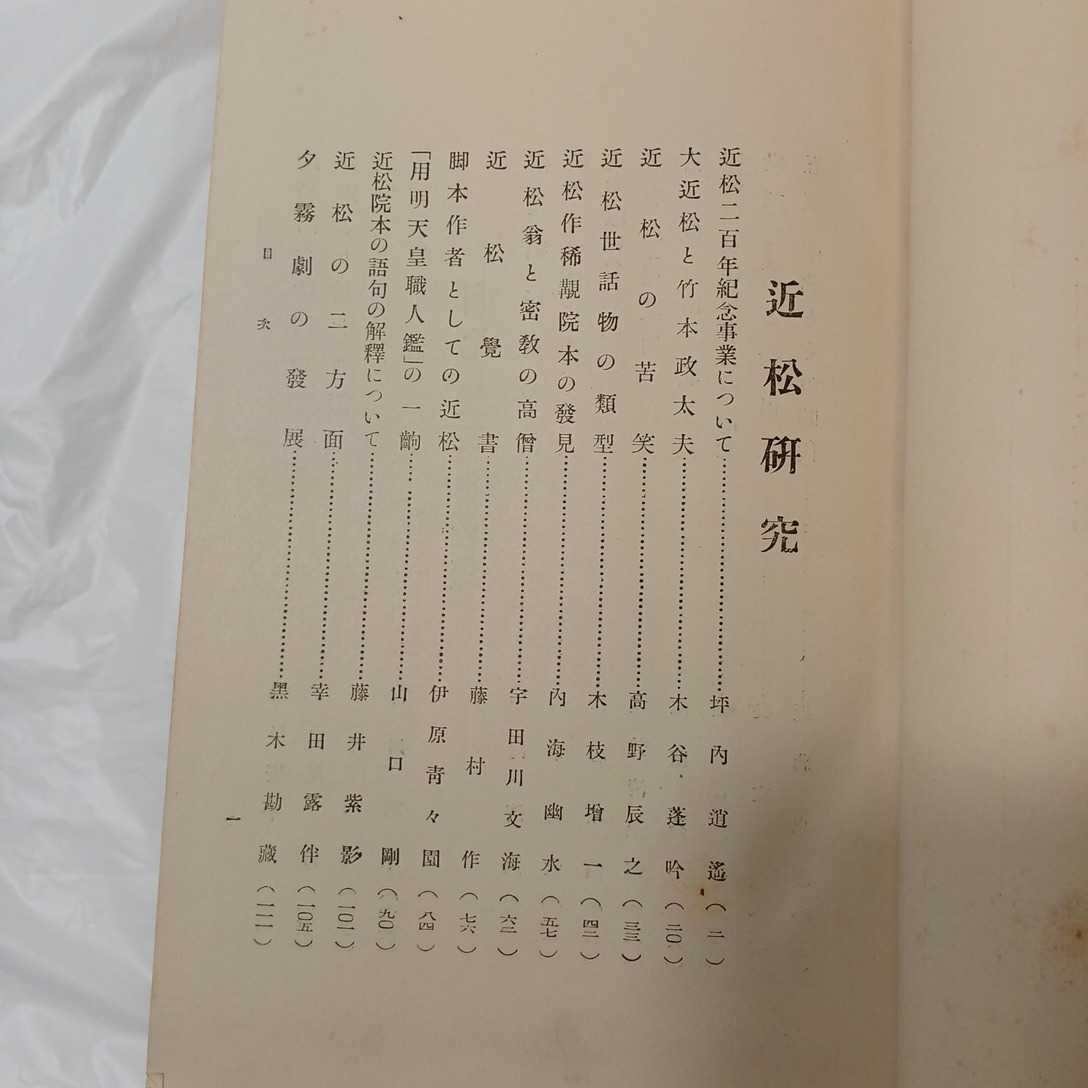 近松研究
近松二百年紀念事業について……坪內逍遙(二)
大近松と竹本政太夫……木谷蓬吟(二〇)
近松の苦笑……高野辰之(三三)
近松世話物の類型……木枝增一(四二)
近松作稀覯院本の發見……內海幽水(五七)
近松翁と密教の高僧……宇田川文海(六二)
近松覺書……藤村作(七六)
脚本作者としての近松……伊原靑々園(八四)
「用明天皇職人鑑」の一齣……山口剛(九〇)
近松院本の語句の解釋について……藤井紫影(一〇一)
近松の二方面……幸田露伴(一〇五)
夕霧劇の發展……黑木勘藏(一一一)
目次
一